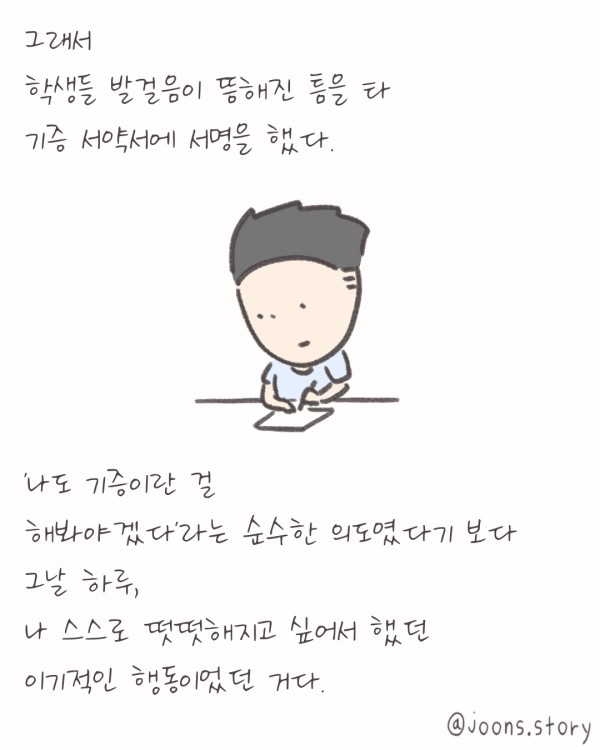 그래서
학생들 발걸음이 뜸해진 틈을 타
기증 서약서에 서명을 했다.
'나도 기증이란 걸
해봐야겠다'라는 순수한 의도였다기 보다
그날 하루,
나 스스로 떳떳해지고 싶어서 했던
이기적인 행동이었던 거다.
@joons.story